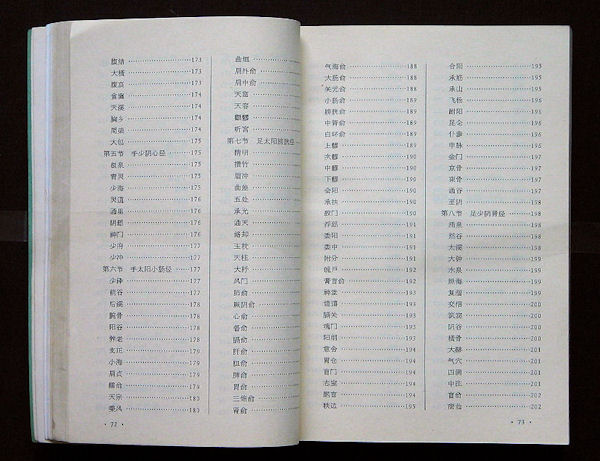 腹结 173
大横 173
腹哀 173
食窦 174
天溪 174
胸乡 174
周荣 175
大包 175
第五节 手少阴心经 175
极泉 175
青灵 175
少海 175
灵道 176
通里 176
阴郄 176
神门 176
少府 177
少冲 177
第六节 手太阳小肠经 177
少泽 177
前谷 177
后溪 178
腕骨 178
阳谷 178
养老 178
支正 179
小海 179
肩贞 179
臑俞 179
天宗 180
秉风 180
·72·
曲垣
肩外俞
肩中俞
天窗
天容
颧髎
听宫
第七节 足太阳膀胱经
睛明
攒竹
眉冲
曲差
五处
承光
通天
络却
玉枕
天柱
大杼
风门
肺俞
厥阴俞
心俞
督俞
膈俞
肝俞
胆俞
脾俞
胃俞
三焦俞
肾俞
气海俞 188
大肠俞 188
关元俞 188
小肠俞 189
膀胱俞 189
中膂俞 189
白环俞 189
上髎 189
次髎 190
中髎 190
下髎 190
会阳 190
承扶 190
殷门 190
浮郄 191
委阳 191
委中 191
附分 191
魄户 192
膏肓俞 192
神堂 192
譩譆 193
膈关 193
魂门 193
阳纲 193
意舍 194
胃仓 194
肓门 194
志室 194
胞肓 194
秩边 195
合阳 195
承筋 195
承山 195
飞扬 196
跗阳 196
昆仑 196
仆参 196
申脉 196
金门 197
京骨 197
束骨 197
通谷 197
至阴 197
第八节 足少阴肾经 198
涌泉 198
然谷 198
太溪 198
大钟 199
水泉 199
照海 199
复溜 199
交信 200
筑宾 200
阴谷 200
横骨 200
大赫 201
气穴 201
四满 201
中注 201
肓俞 202
商曲 202
·73·